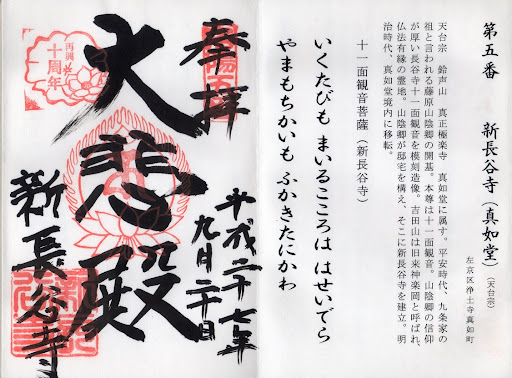 第五番　新長谷寺（真如堂）（天台宗）
左京区浄土寺真如町
天台宗　鈴声山　真正極楽寺　真如堂に属す。平安時代、九条家の
祖と言われる藤原山陰卿の開基。本尊は十一面観音。山陰卿の信仰
が厚い長谷寺十一面観音を模刻造像。吉田山は旧来神楽岡と呼ばれ、
仏法有縁の霊地。山陰卿が邸宅を構え、そこに新長谷寺を建立。明
治時代、真如堂境内に移転。
十一面観音菩薩（新長谷寺）
いくたびも　まいるこころは　はせいでら
やまもちかいも　ふかきたにかわ
奉拝
平成二十七年
九月二十日
大悲殿
新長谷寺
再興
十周年